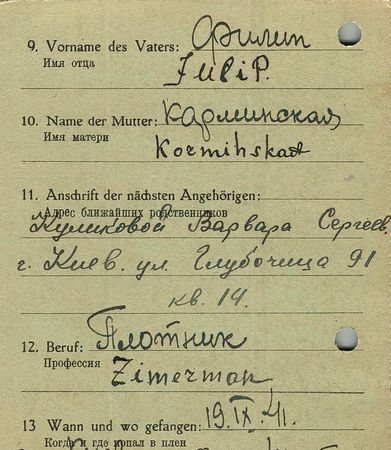 9. Vorname des Vaters: Филип
Имя отца
Filip.
10. Name der Mutter: Карминская
Имя матери
Kormihskaя
11. Anschrift der nächsten Angehörigen:
Адрес ближайших родственников
Куликовой Варвара Сергеев.
г. Киев. ул. Глубочица 91
кв. 14.
12. Beruf: Плотник
Профессия
Zimerman,
13 Wann und wo gefangen: 19.IX.41.
Когда и где попал в плен